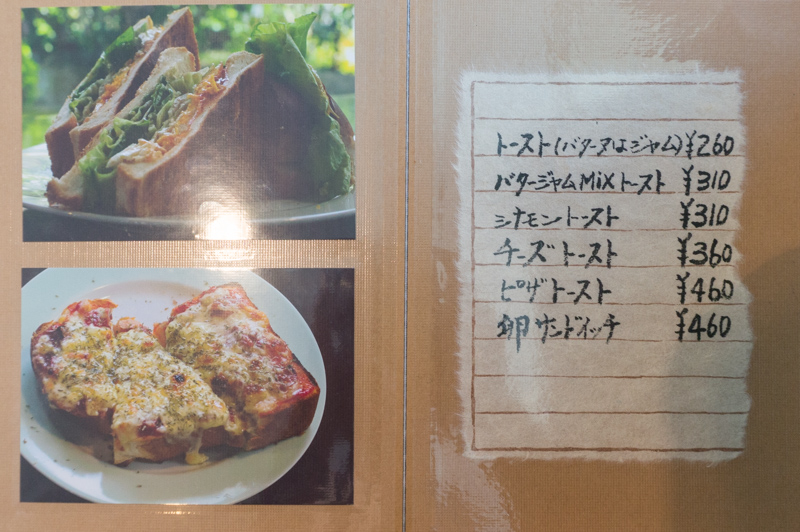 トースト(バターヌはジャム)¥260
バタージャムMiXトースト ¥310
シナモントースト ¥310
チーズトースト ¥360
ピザトースト ¥460
卵サンドイッチ ¥460